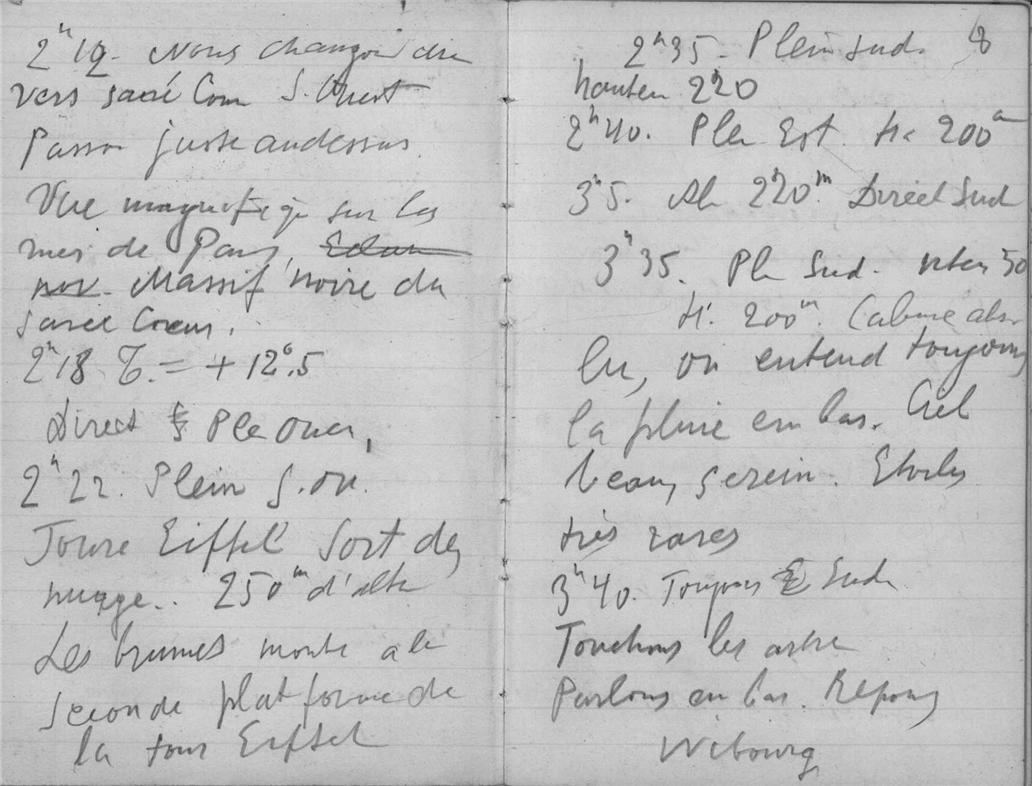 2h 12. Nous changeon dire
vers sacré Coeur S. Ouest
Passon juste audessus.
Vue magnifique sur les
mer de Paris, Eclair
noir. Massif noire du
sacré Coeur.
2h 18 T. = + 12°.5
Direct S Ple Ouest,
2h 22. Plein S. ou.
Toure Eiffel sort des
nuage.. 250m d'alte
Les brumes monte a la
seconde plat forme de
la tour Eiffel
8
2h 35. Plein sud.
hauteu 220
2h 40. Plei Est. H. 200m
3h 5. Alt 220m. Direct Sud
3h 35. Pl Sud. 50
H. 200m. Calme abso
lu, on entend toujours
la pluie en bas. Ciel
beau, serein. Etoiles
très rares
3h 40. Toujours E Sud
Touchons les arbre
Parlons en bas. Repons